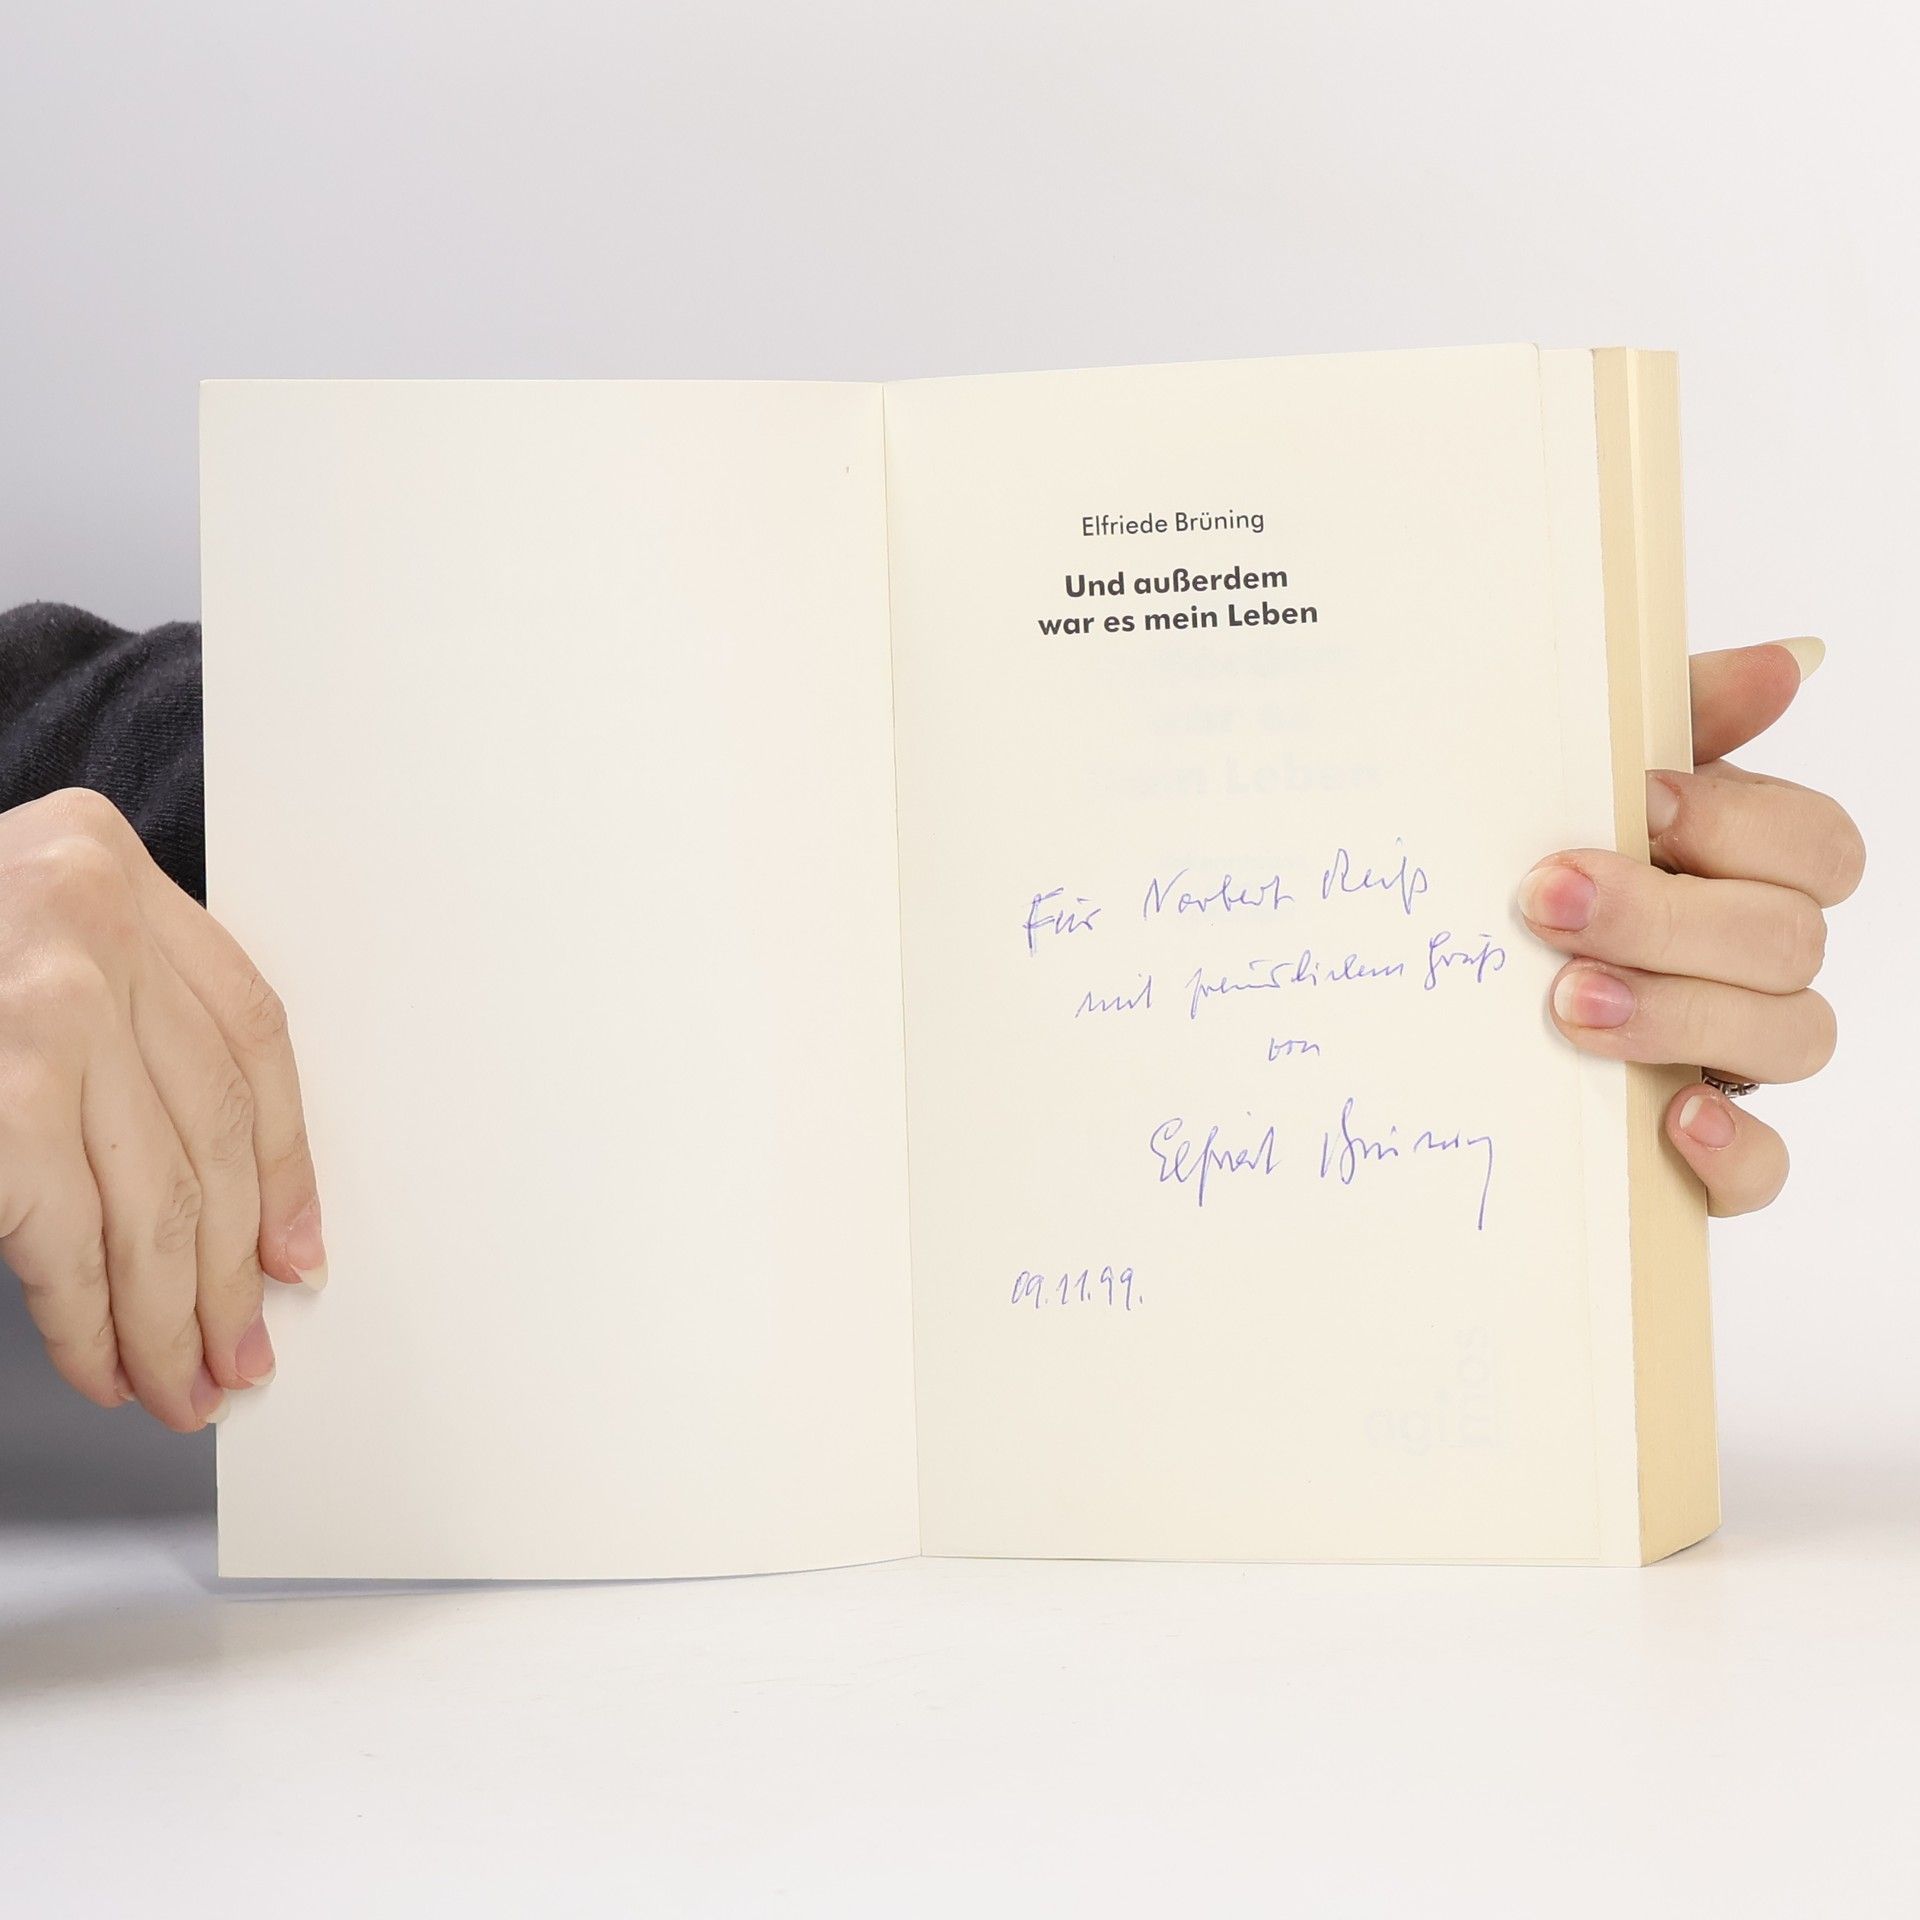 Elfriede Brüning
Und außerdem
war es mein Leben
Für Norbert Reiß
mit freundlichem Gruß
von
Elfriede Brüning
09.11.99.